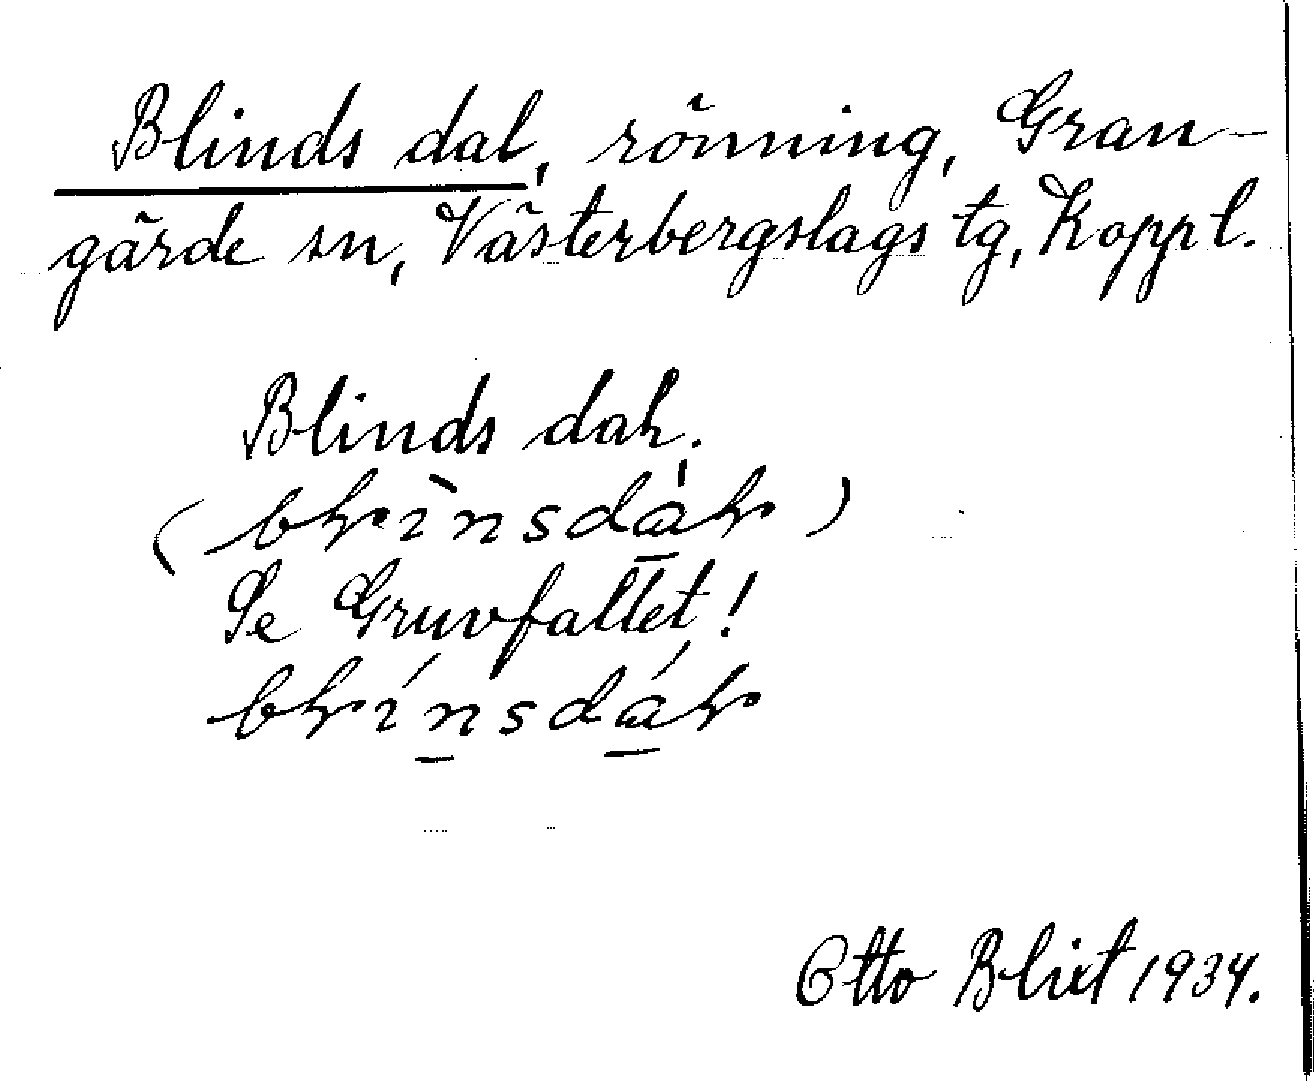 Blinds dal, rönning, Gran-
gärde sn, Västerbergslags tg, Koppl.
Blinds daɫ.
(bɫìnsdàɫ)
Se Gruvfallet!
bɫínsdáɫ
Otto Blixt 1934.